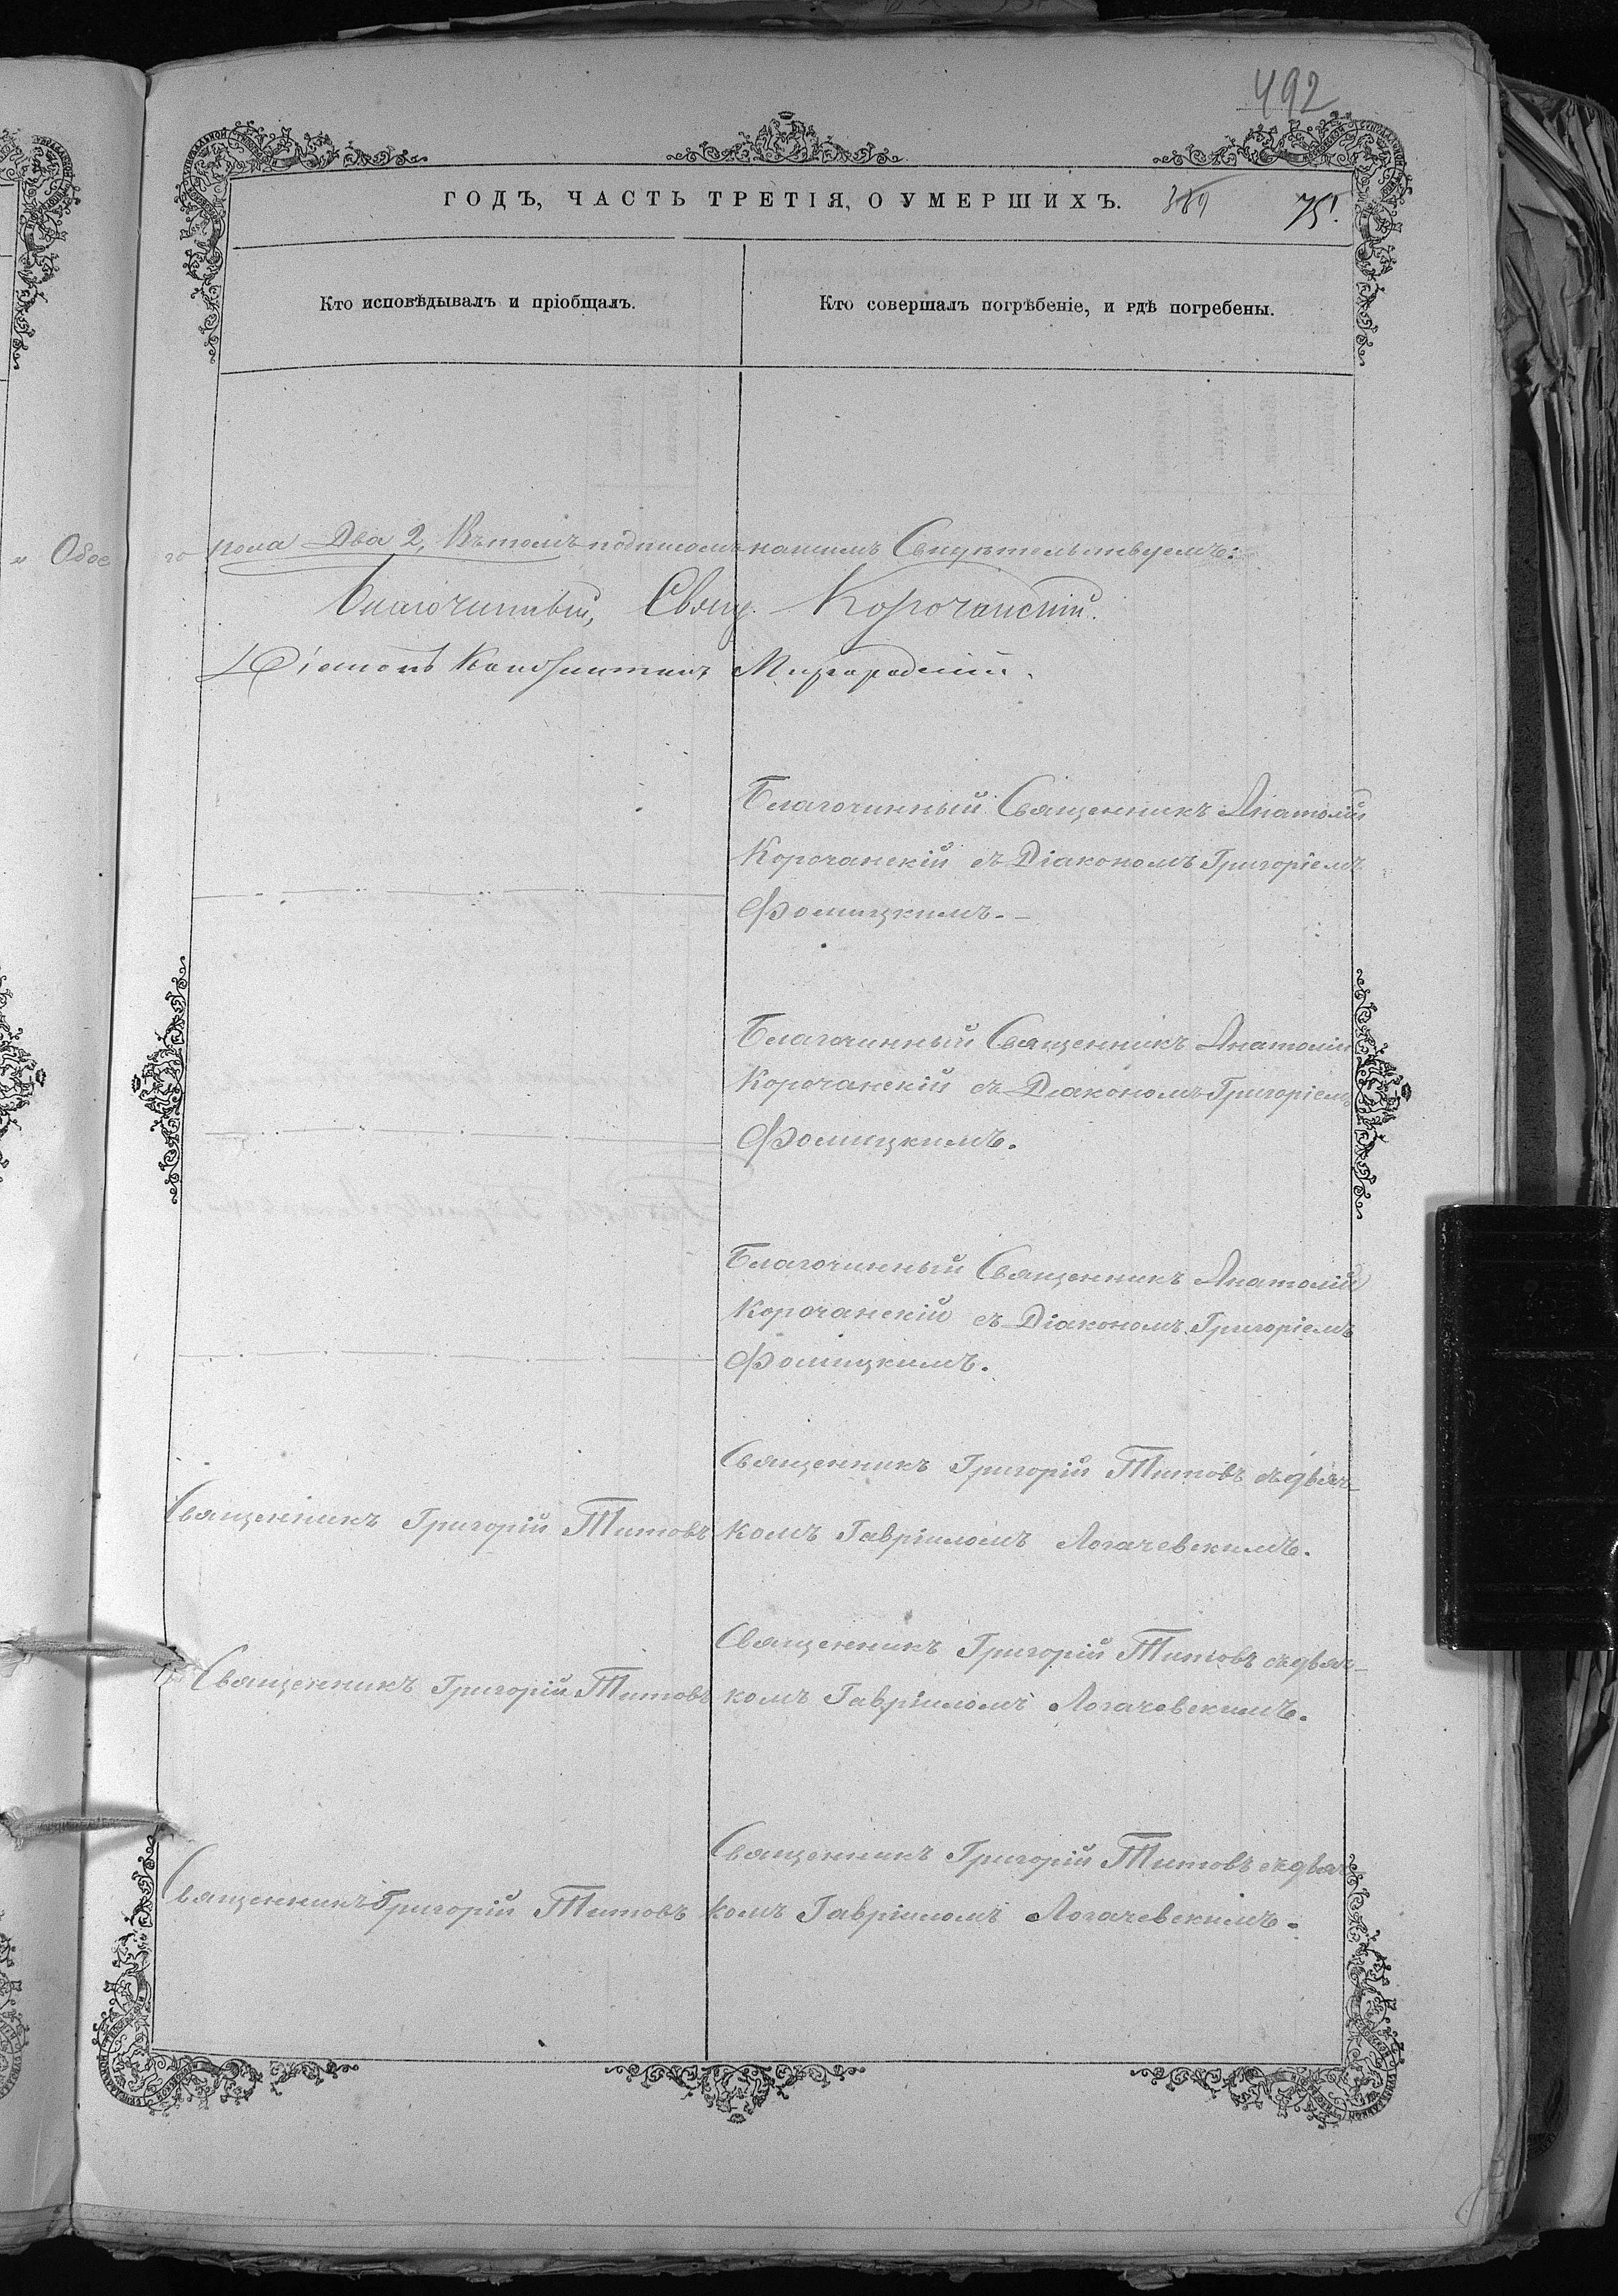 492
ГОДЪ, ЧАСТЬ ТРЕТІЯ, О УМЕРШИХЪ. 389 75.
Кто исповѣдывалъ и пріобщалъ.
Кто совершалъ погребеніе, и гдѣ погребены.
" Обое
го пола Два 2, Въ томъ подписомъ нашимъ Свидѣтельствуемъ:
Благочинный, Свящ. Корочанскій.
Діаконъ Константинъ Миргородскій.
Благочинный Священникъ Анатолій
Корочанскій съ Діакономъ Григоріемъ
Фомицкимъ. –
Благочинный Священникъ Анатолій
Корочанскій съ Діакономъ Григоріемъ
Фомицкимъ.
Благочинный Священникъ Анатолій
Корочанскій съ Діакономъ Григоріемъ
Фомицкимъ.
Священникъ Григорій Титовъ
Священникъ Григорій Титовъ съ дьяч-
комъ Гавріиломъ Логачевскимъ.
Священникъ Григорій Титовъ
Священникъ Григорій Титовъ съ дьяч-
комъ Гавріиломъ Логачевскимъ.
Священникъ Григорій Титовъ
Священникъ Григорій Титовъ съ дьяч-
комъ Гавріиломъ Логачевскимъ.